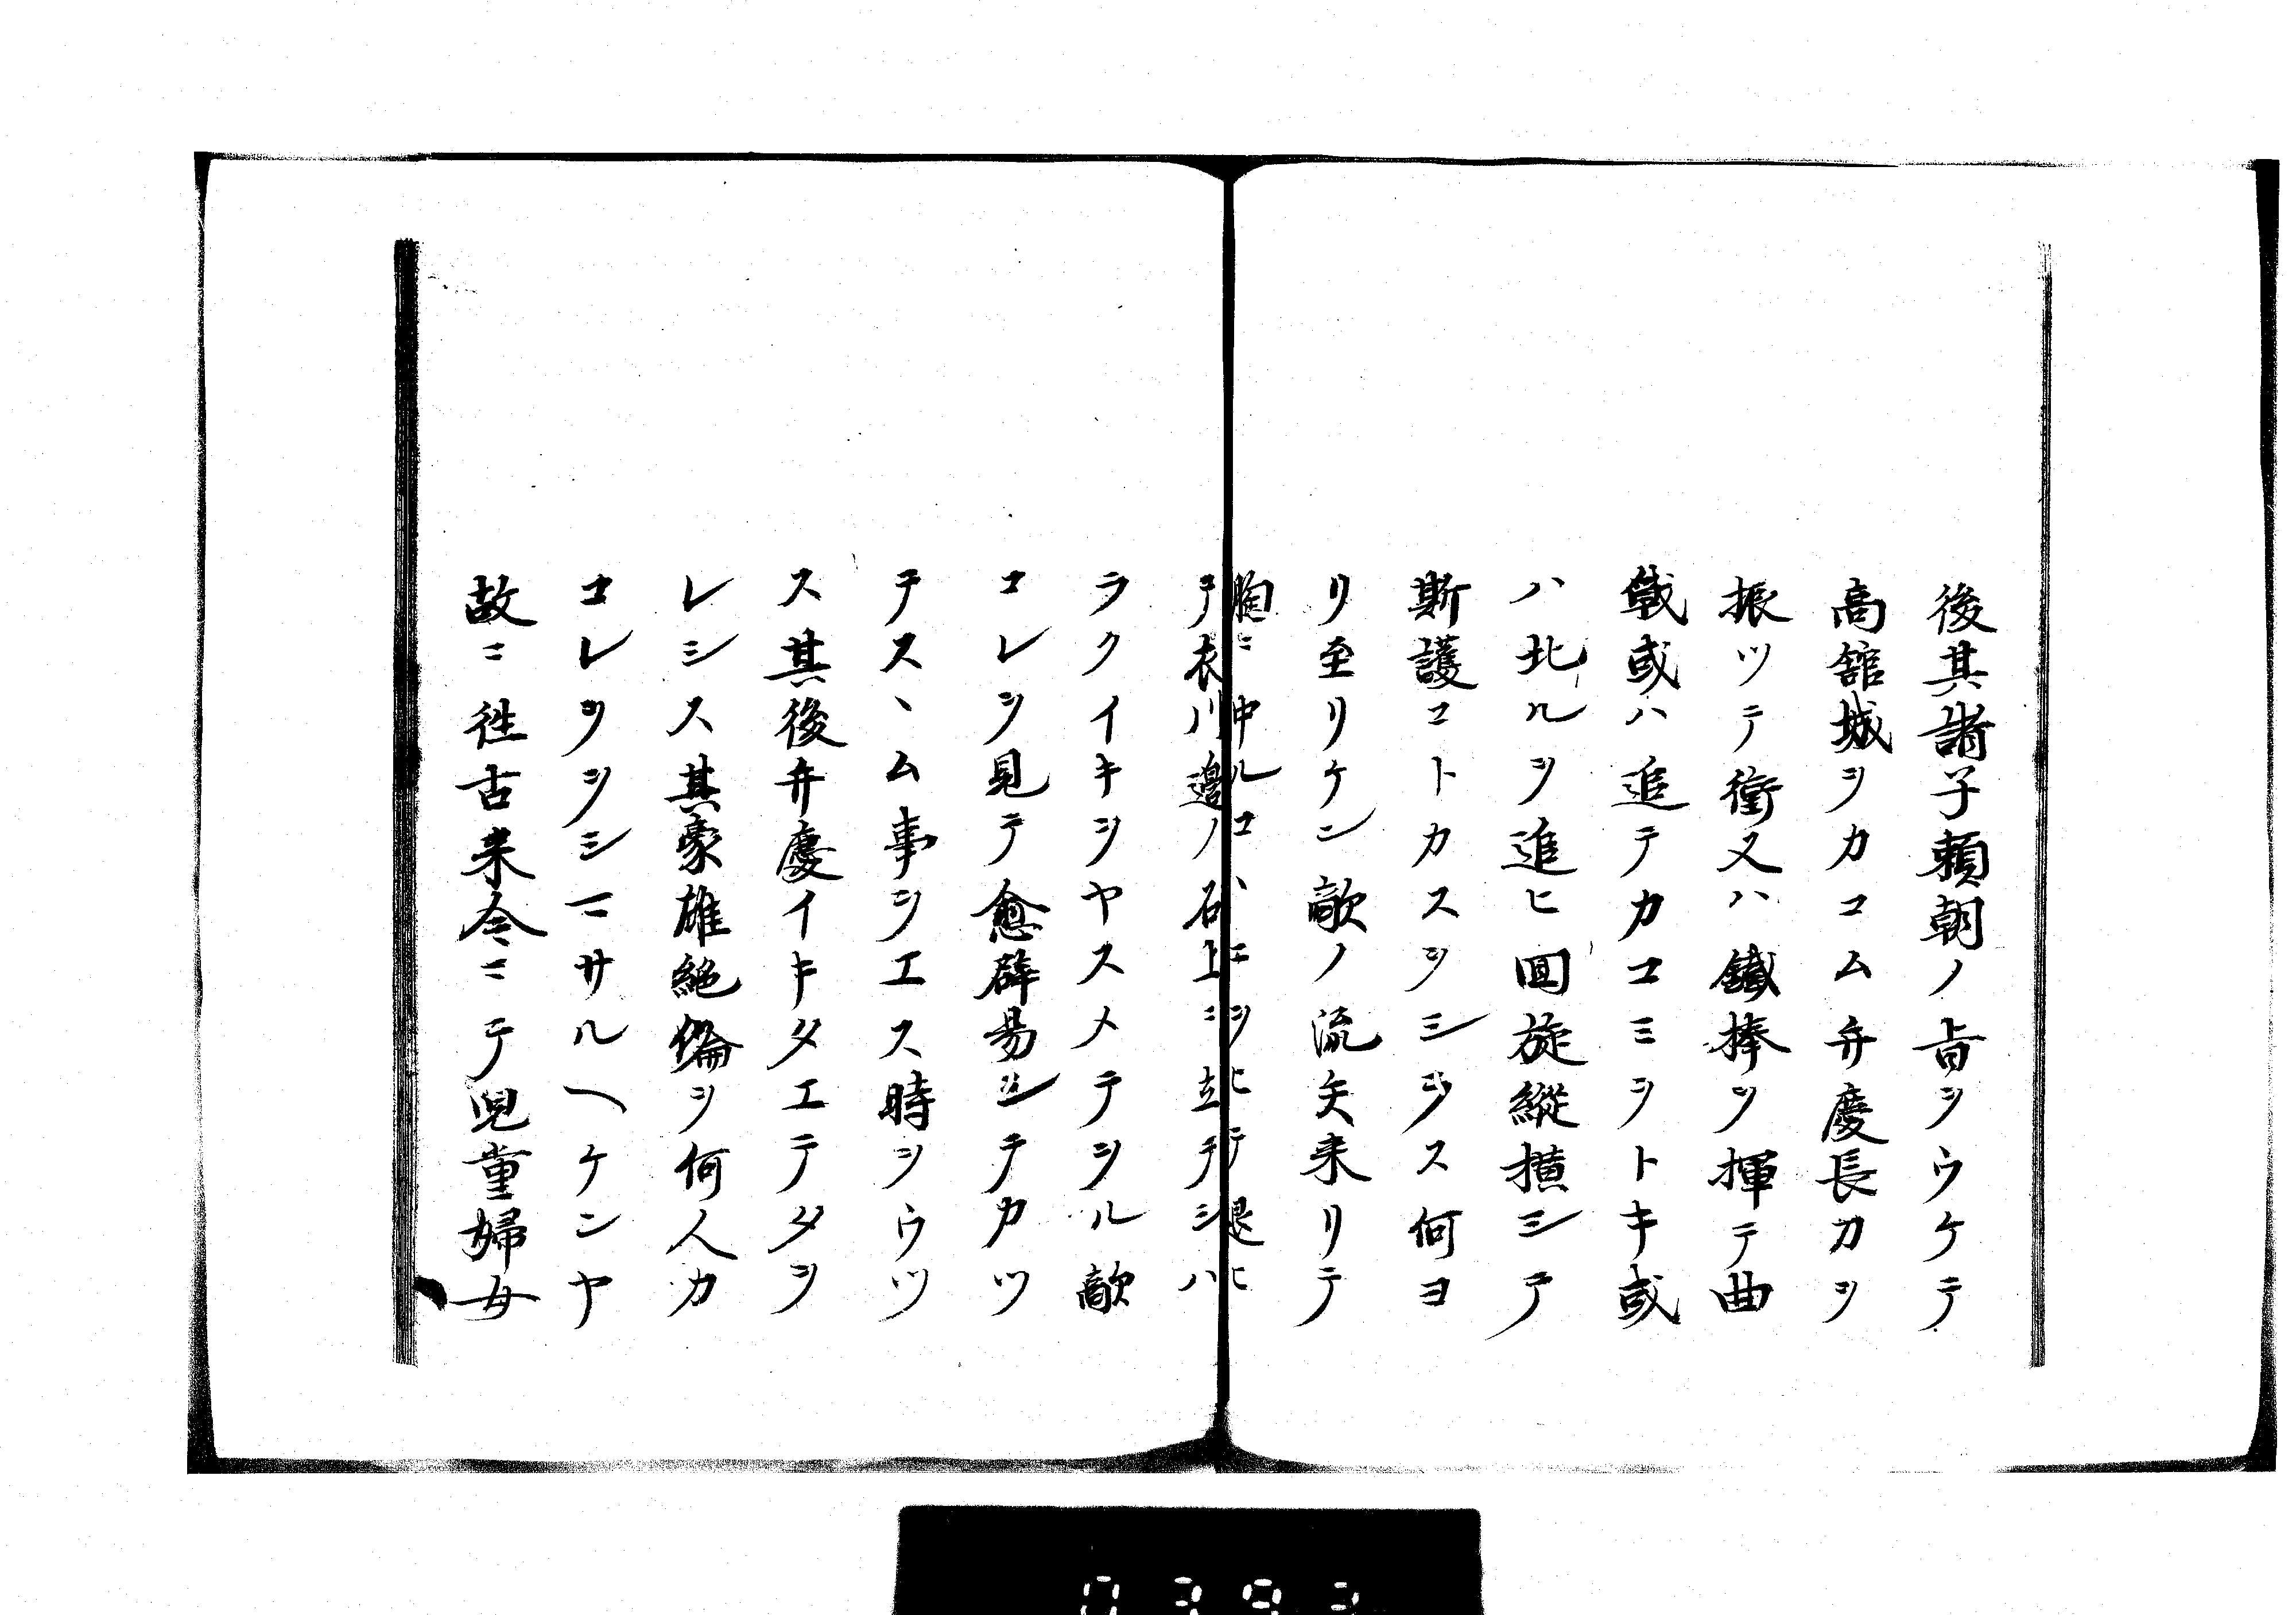 後其諸子頼朝ノ旨ヲウケテ
高舘城ヲカコム弁慶長刀ヲ
振ツテ衝又ハ鐵捧ヲ揮テ曲
戟或ハ追テカコミヲトキ或
ハ北ルヲ進ヒ回旋縦横シテ
斯護コトカスヲシラス何ヨ
リ至リケン敵ノ流矢来リテ
胸ニ中ルコ
ヲ衣川邉ノ石上ニ立テシハ
ラクイキヲヤスメテヲル敵
コレヲ見テ愈辟易シテカツ
テスヽム事ヲエス時ヲウツ
ス其後弁慶イキタエテタヲ
レシス其豪雄絶倫ヲ何人カ
コレヲヲシマサルヘケンヤ
故ニ徃古来今ニテ児童婦女